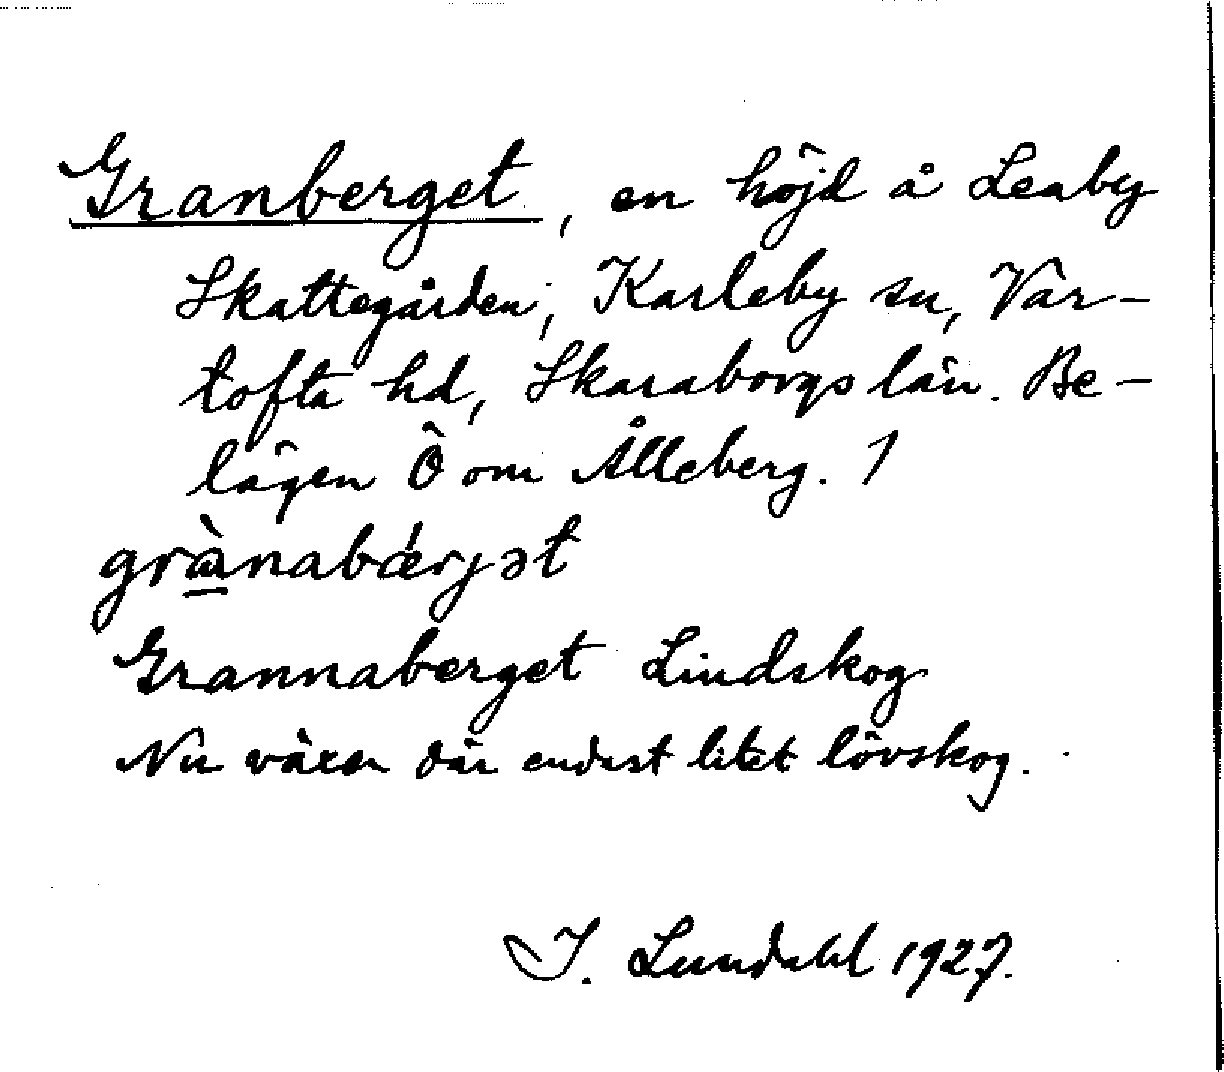 Granberget, en höjd å Leaby
Skattegården, Karleby sn, Var-
tofta hd, Skaraborgs län. Be-
lägen Ö om Ålleberg. 1
grànabǽrjət
Grannaberget Lindskog
Nu växer där endast litet lövskog.
I. Lundahl 1927.